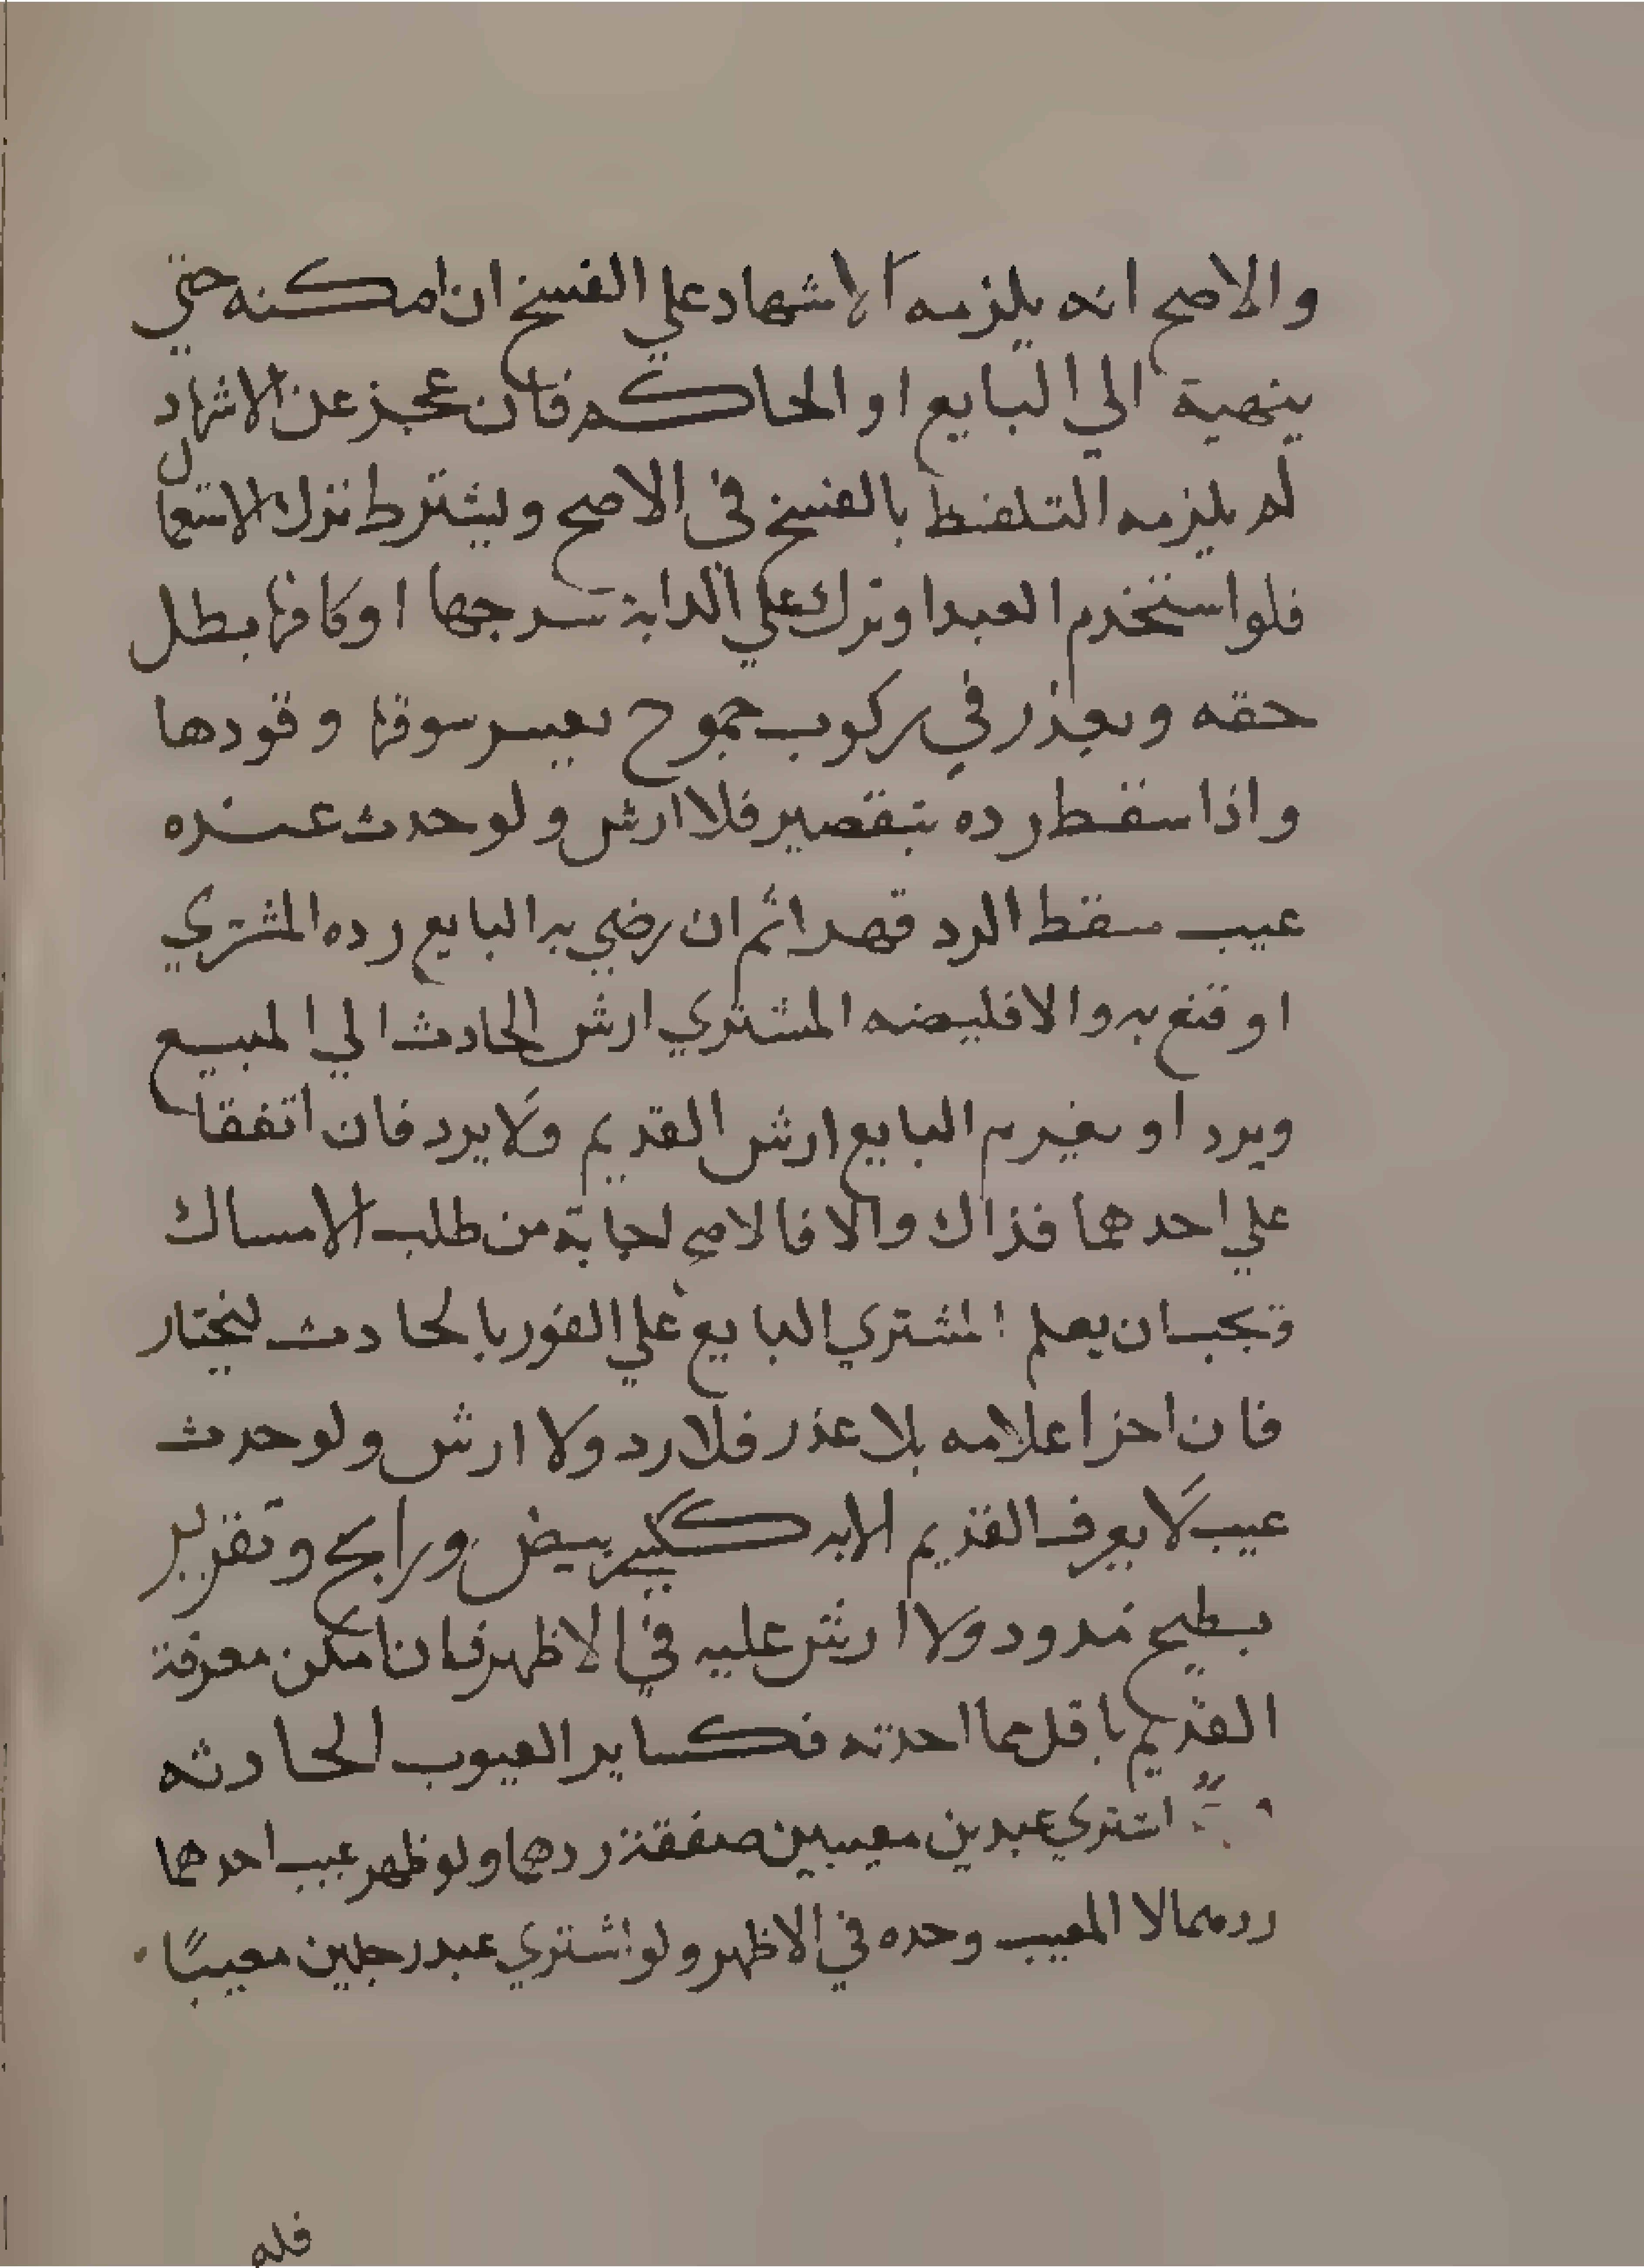 والاصح انه يلزمه الاشهاد علي الفسخ ان امكنه حتي
ينهية الي البايع او الحاكم فان عجز عن الاشهاد
لم يلزمه التلفظ بالفسخ في الاصح ويشترط ترك الاستعمال
فلو استخدم العبد او ترك علي الدابة سرجها او كافها بطل
حقه ويعذر في ركوب جموح يعسر سوقها وقودها
واذا سقط رده بتقصير فلا ارش ولو حدث عنده
عيب سقط الرد قهرا ثم ان رضي به البايع رده المشتري
او قنع به والا فليضه المشتري ارش الحادث الي المبيع
ويرد او يغرم البايع ارش القديم ولا يرد فان اتفقا
علي احدهما فذاك والا فالاصح اجابة من طلب الامساك
ويجب ان يعلم المشتري البايع علي الفور بالحادث ليختار
فان اخر اعلامه بلا عذر فلا رد ولا ارش ولو حدث
عيب لا يعرف القديم الا به ككسر بيض ورانج وتقرير
بطيح مدود ولا ارش عليه في الاظهر فان امكن معرفة
القديم باقل مما احدثه فكساير العيوب الحادثه
اشتري عبدين معيبين صفقة ردهما ولو ظهر عيب احدهما
ردهما لا المعيب وحده في الاظهر ولو اشتري عبد رجلين معيبًا
فله